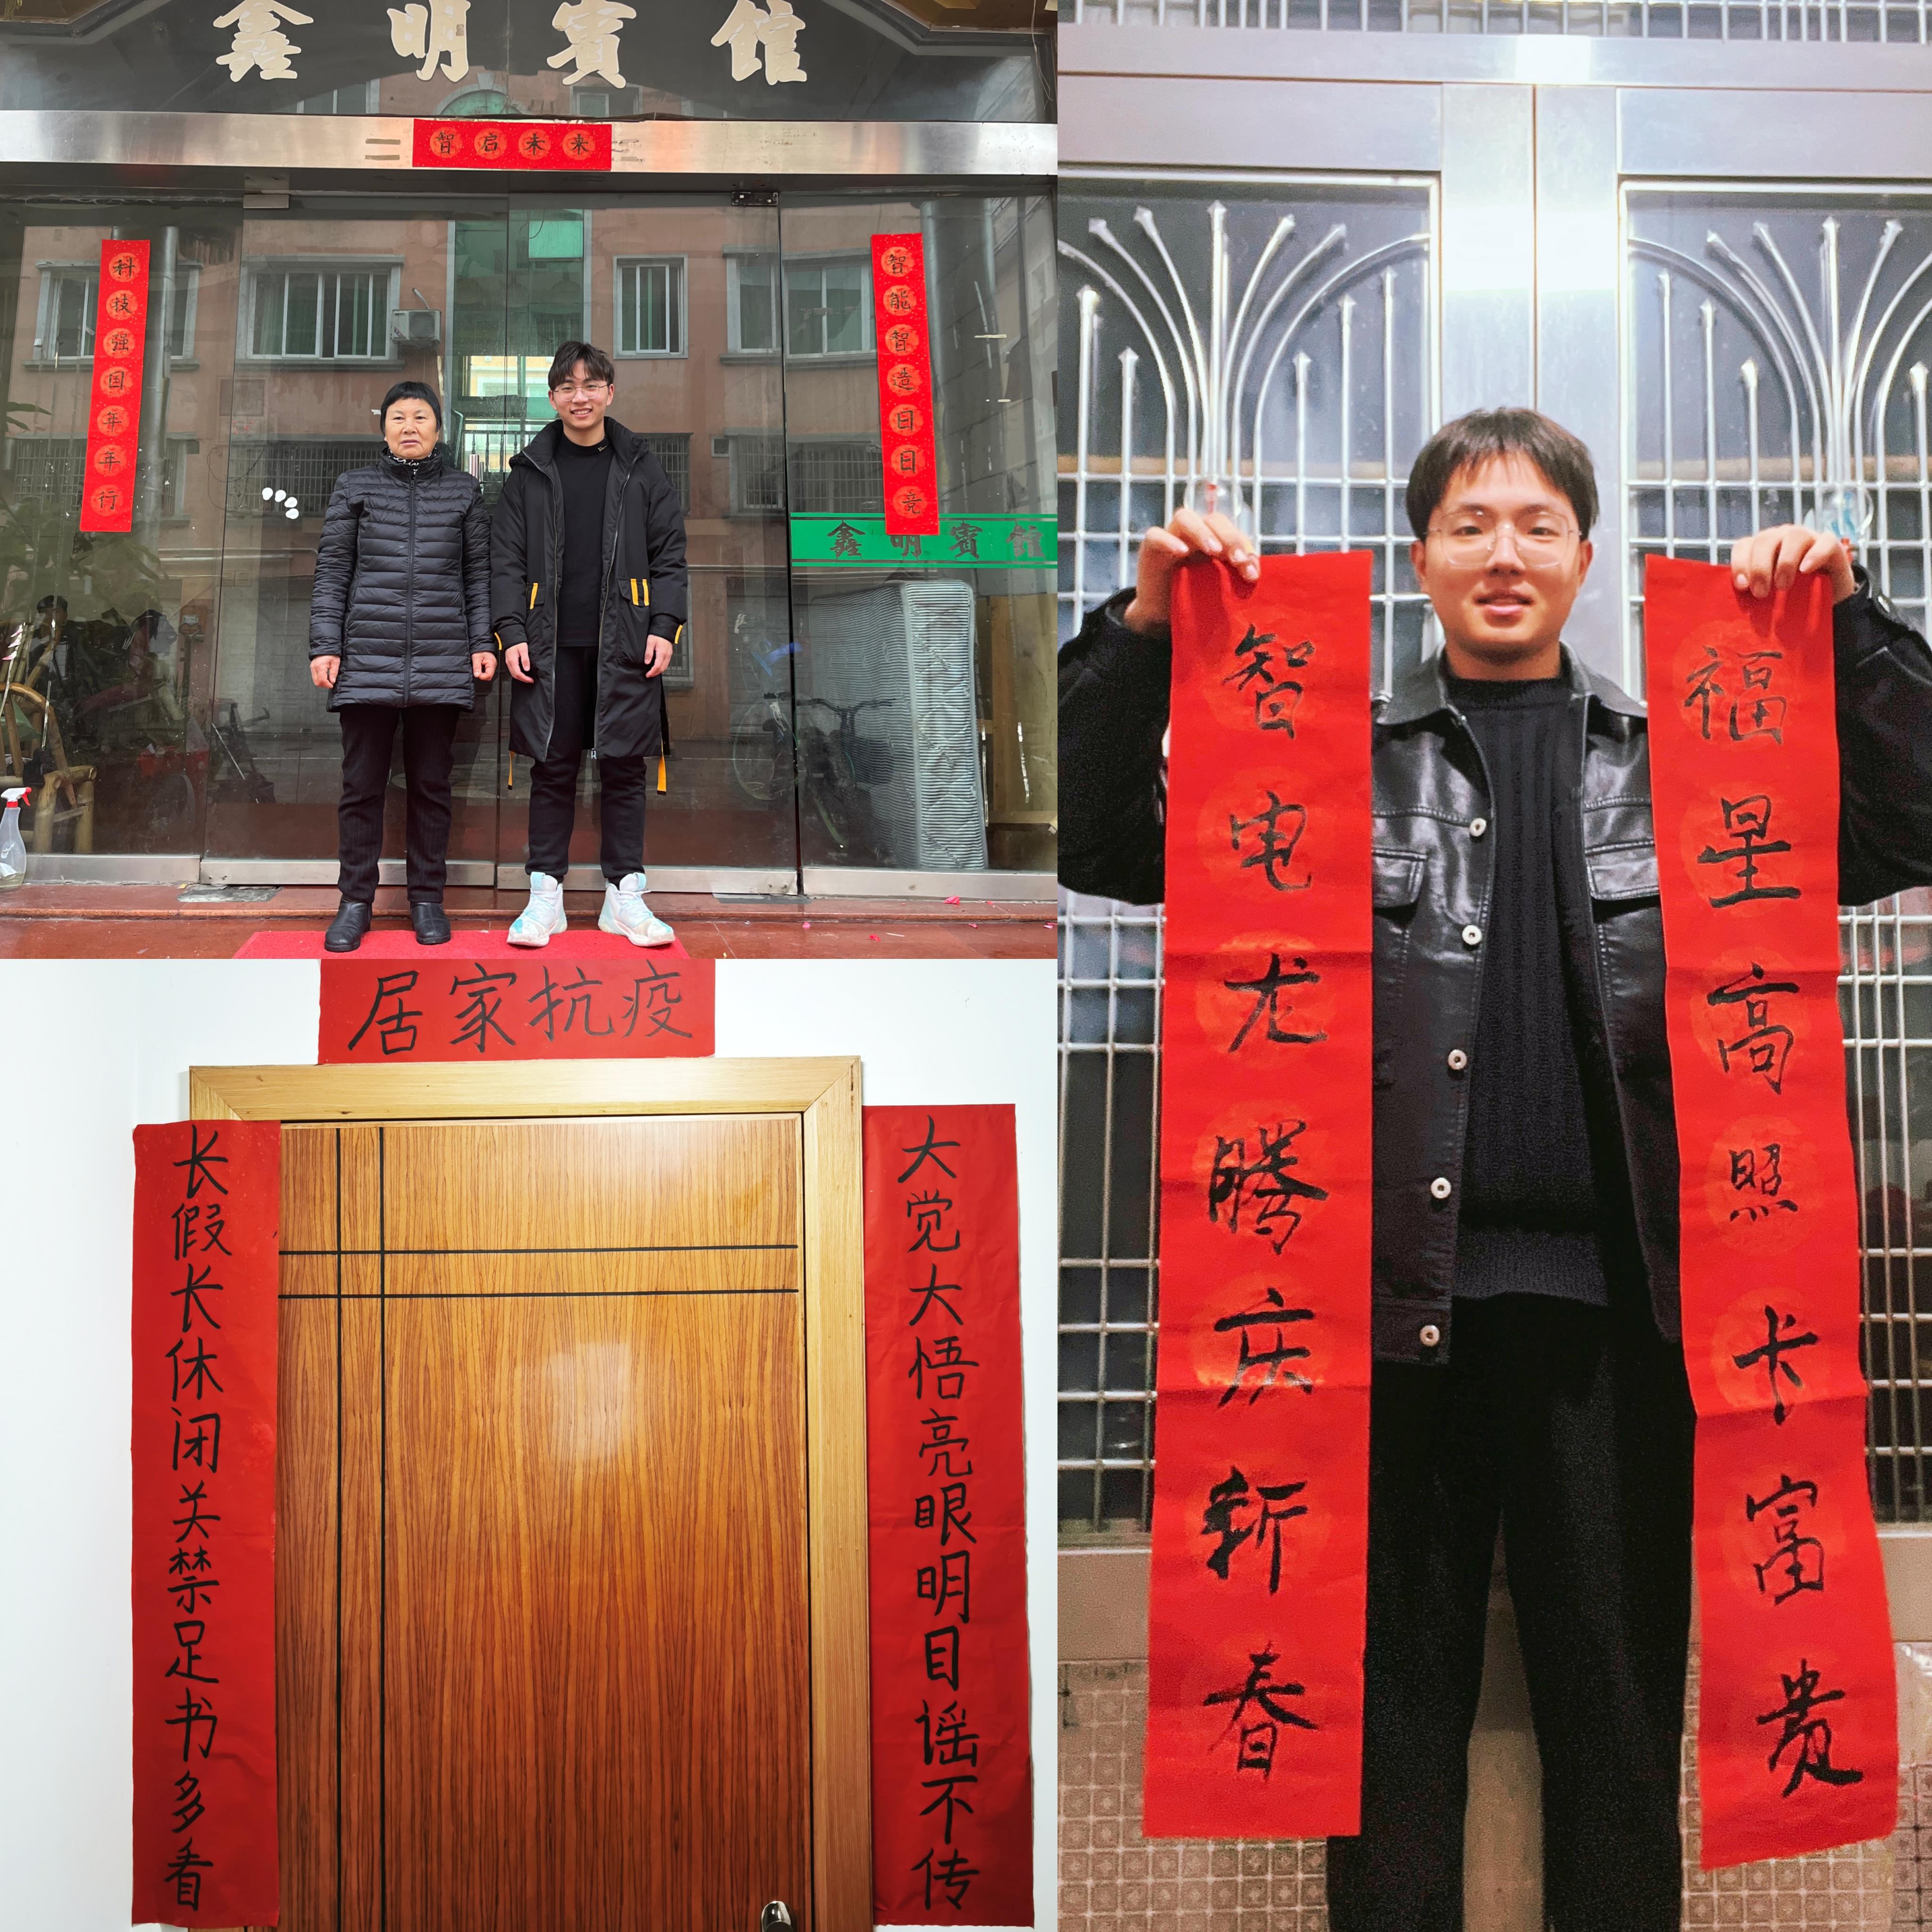 鑫明賓館
智启未来
科技强国年年行
智能智造日日亮
鑫明賓館
居家抗疫
长假长休闭关禁足书多看
大觉大悟亮眼明目谣不传
智电龙腾庆新春
福星高照卡富贵